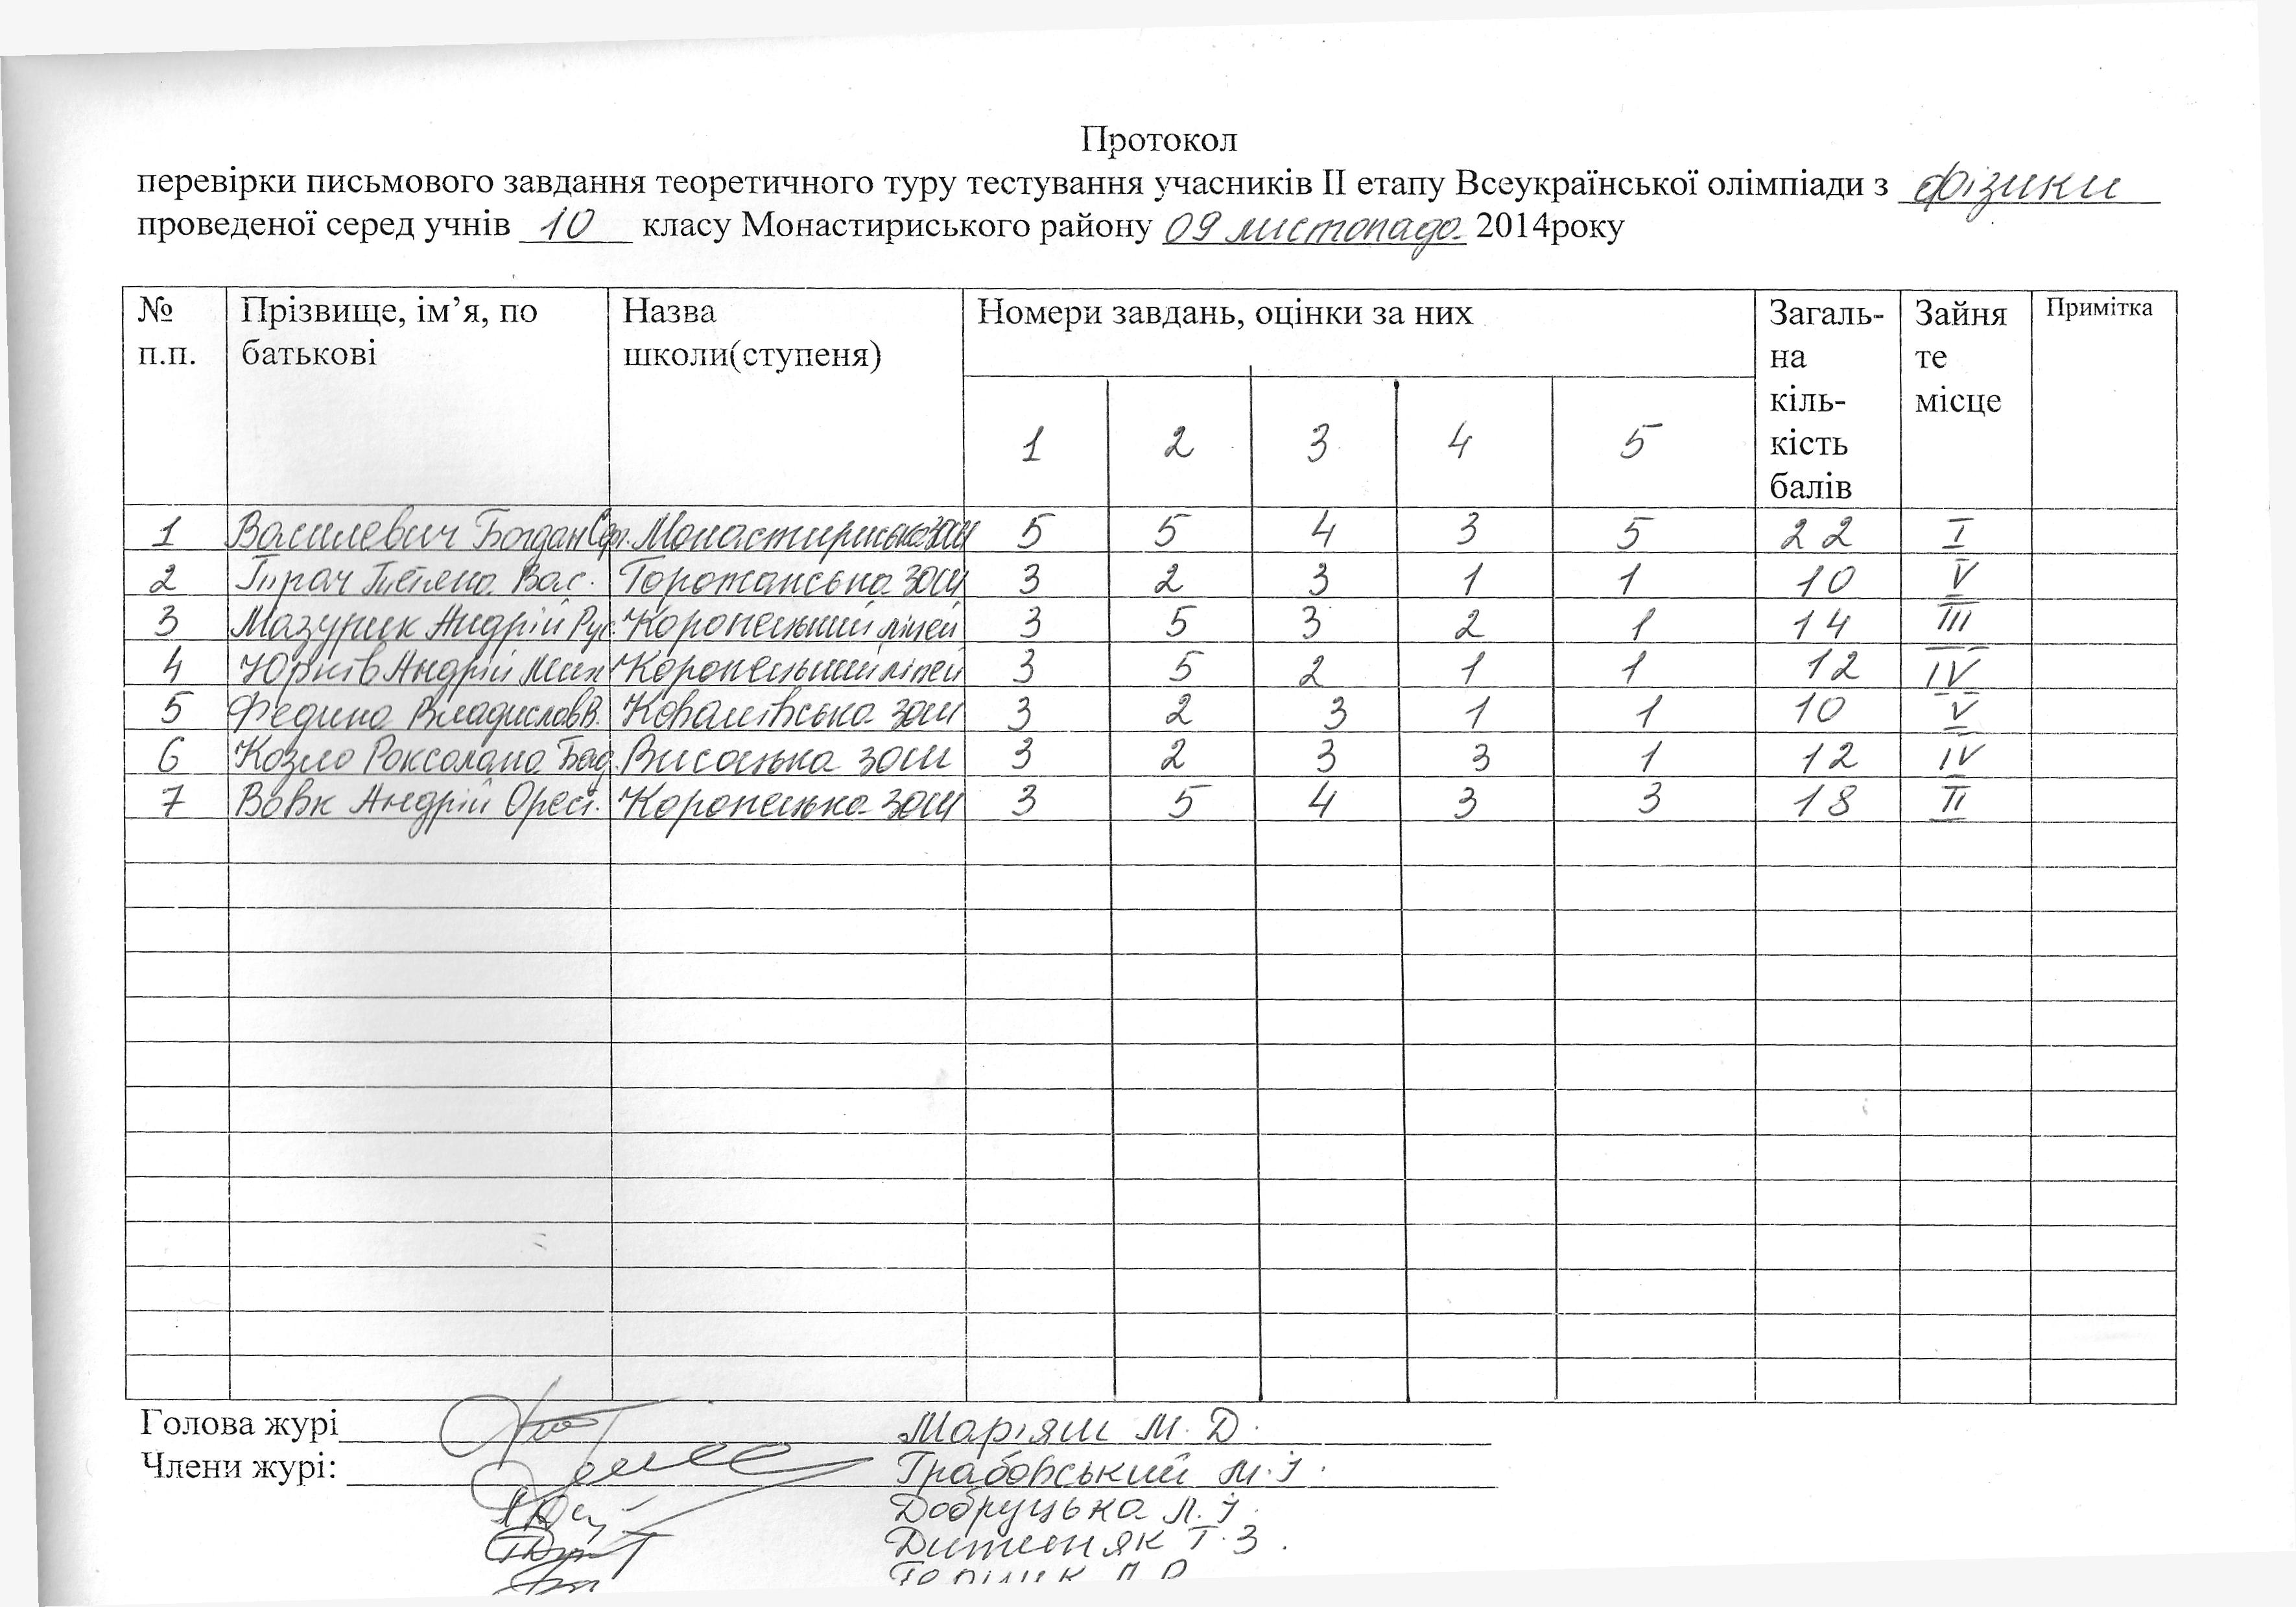 Протокол
перевірки письмового завдання теоретичного туру тестування учасників ІІ етапу Всеукраїнської олімпіади з фізики
проведеної серед учнів 10 класу Монастириського району 09 листопада 2014року
№ п.п. Прізвище, ім’я, по батькові Назва школи(ступеня) Номери завдань, оцінки за них Загаль-на кіль-кість балів Зайняте місце Примітка
1 2 3 4 5
1 Василевич Богдан Сер. Монастириська зош 5 5 4 3 5 22 I
2 Тірач Тетяна Вас. Горожанська зош 3 2 3 1 1 10 V
3 Мазурик Андрій Рус. Коропецький ліцей 3 5 3 2 1 14 III
4 Юрків Андрій Мих Коропецький ліцей 3 5 2 1 1 12 IV
5 Федина Владислав В. Ковалівська зош 3 2 3 1 1 10 V
6 Козло Роксолана Богд. Височька зош 3 2 3 3 1 12 IV
7 Вовк Андрій Орест. Коропецька зош 3 5 4 3 3 18 II
Голова журі Маріяш М. Д.
Члени журі: Грабовський М.І.
Добруцька Л.І.
Дитиняк Т.З.